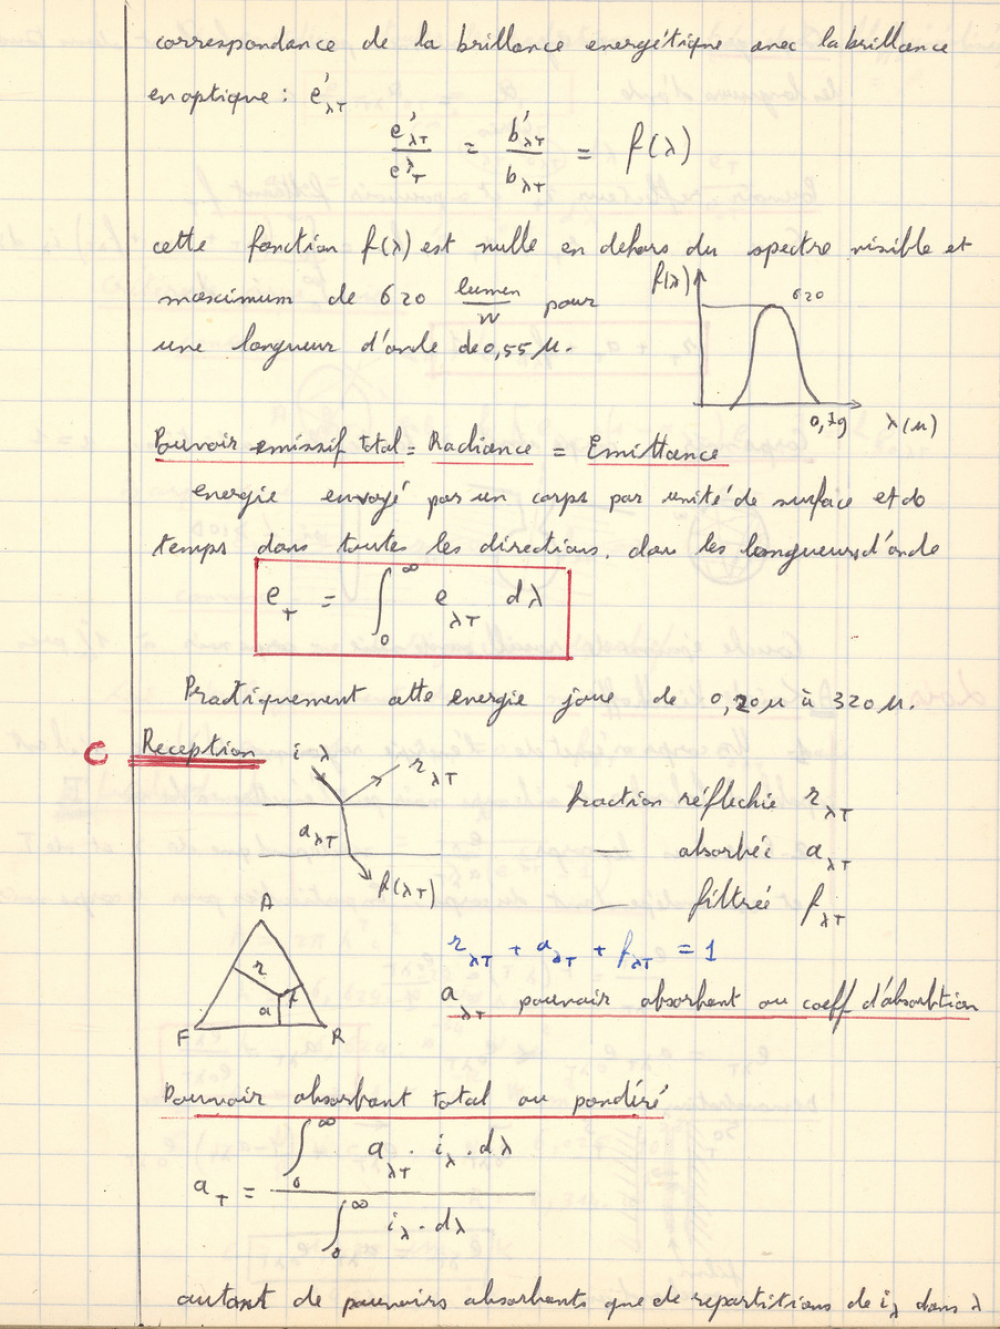 correspondance de la brillance energétique avec la brillance
en optique : e'λT
e'λT / eλT = b'λT / bλT = f(λ)
cette fonction f(λ) est nulle en dehors du spectre visible et
maximum de 620 lumen/W pour
une longueur d'onde de 0,55 µ.
f(λ)
620
0,79
λ(µ)
Pouvoir emissif total = Radiance = Emittance
energie envoyé par un corps par unité de surface et de
temps dans toutes les directions. dans les longueurs d'onde
eT = ∫₀^∞ eλT dλ
Practiquement cette energie joue de 0,20µ à 320µ.
C Reception
i λ
rλT
aλT
f(λT)
fraction réflechie rλT
— absorbée aλT
— filtrée fλT
rλT + aλT + fλT = 1
aλT pouvoir absorbant ou coeff d'absorbtion
A
r
f
a
F
R
Pouvoir absorbant total ou pondéré
aT = ∫₀^∞ aλT · iλ · dλ / ∫₀^∞ iλ · dλ
autant de pouvoirs absorbants que de repartitions de iλ dans λ